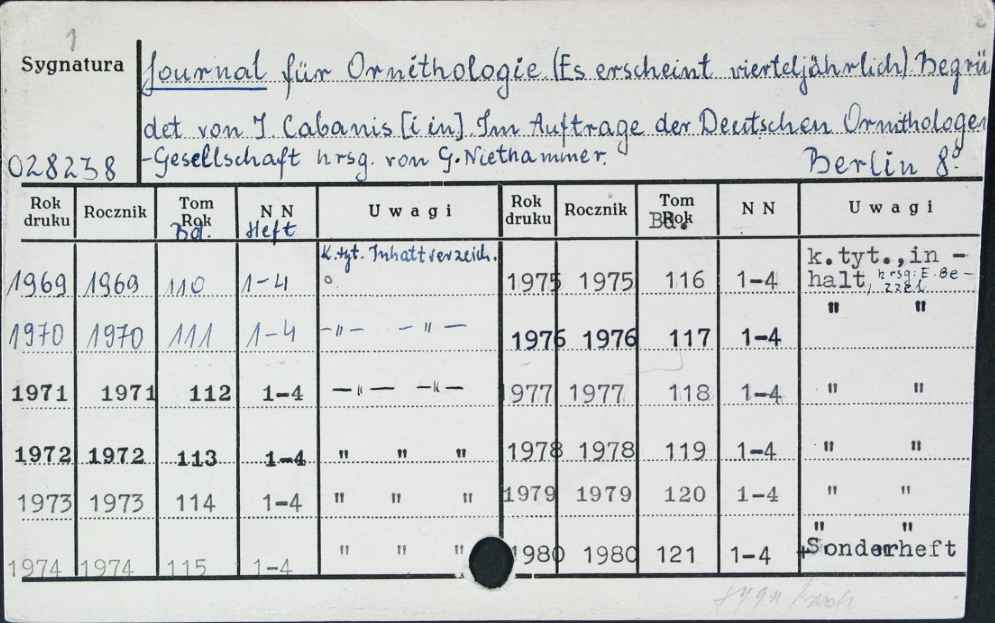 1
Sygnatura
Journal für Ornithologie (Es erscheint vierteljährlich) Begrü
det von J. Cabanis [i in]. Im Auftrage der Deutschen Ornithologen
028238
-Gesellschaft hrsg. von G. Niethammer. Berlin 8º
Rok druku Rocznik Tom Rok Bd. N N Heft Uwagi Rok druku Rocznik Tom Rok Bd. N N Uwagi
1969 1969 110 1-4 k. tyt. Inhaltverzeich. 1975 1975 116 1-4 k.tyt., in - halt, hrsg: E. Be -
1970 1970 111 1-4 -"- -"- 1976 1976 117 1-4 " "
1971 1971 112 1-4 -"- -"- 1977 1977 118 1-4 " "
1972 1972 113 1-4 " " " 1978 1978 119 1-4 " "
1973 1973 114 1-4 " " " 1979 1979 120 1-4 " "
1974 1974 115 1-4 " " " 1980 1980 121 1-4 " " +Sonderheft